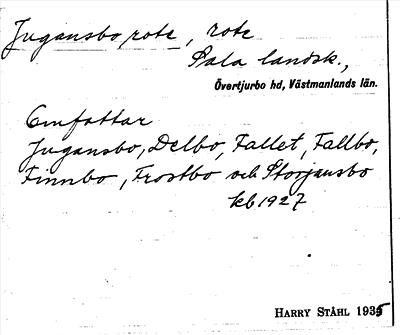 Jugansbo rote, rote
Sala landsk.,
Övertjurbo hd, Västmanlands län.
Omfattar
Jugansbo, Delbo, Fallet, Fallbo,
Finnbo, Frostbo och Storjansbo
kb 1927
HARRY STÅHL 1935